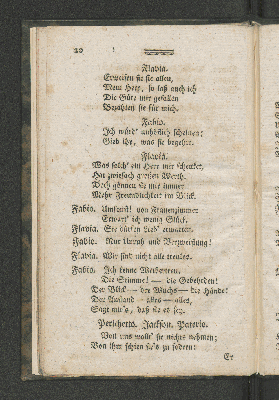 20
Flavia.
Erweisen sie sie allen,
Mein Herr, so laß auch ich
Die Güte mir gefallen
Bezahlen sie für mich.
Fabio.
Ich würd' unhöflich scheinen;
Gieb ihr, was sie begehrt.
Flavia.
Was solch' ein Herr mir schenket,
Hat zwiefach großen Werth.
Doch gönnen sie mir immer
Mehr Freundlichkeit im Blick.
Fabio. Umsonst! von Frauenzimmer
Erwart' ich wenig Glück.
Flavia. Sie dürfen Lieb' erwarten.
Fabio. Nur Unruh und Verzweiflung!
Flavia. Wir sind nicht alle treulos.
Fabio. Ich kenne Weibertren.
Die Stimme! — die Gebehrden!
Der Blick — der Wuchs — die Hände!
Der Anstand — alles — alles,
Sagt mir's, daß sie es sey.
Perichetto, Jackson, Patavio.
Von uns wollt' sie nichts nehmen;
Von ihm schien sie's zu fodern:
Er